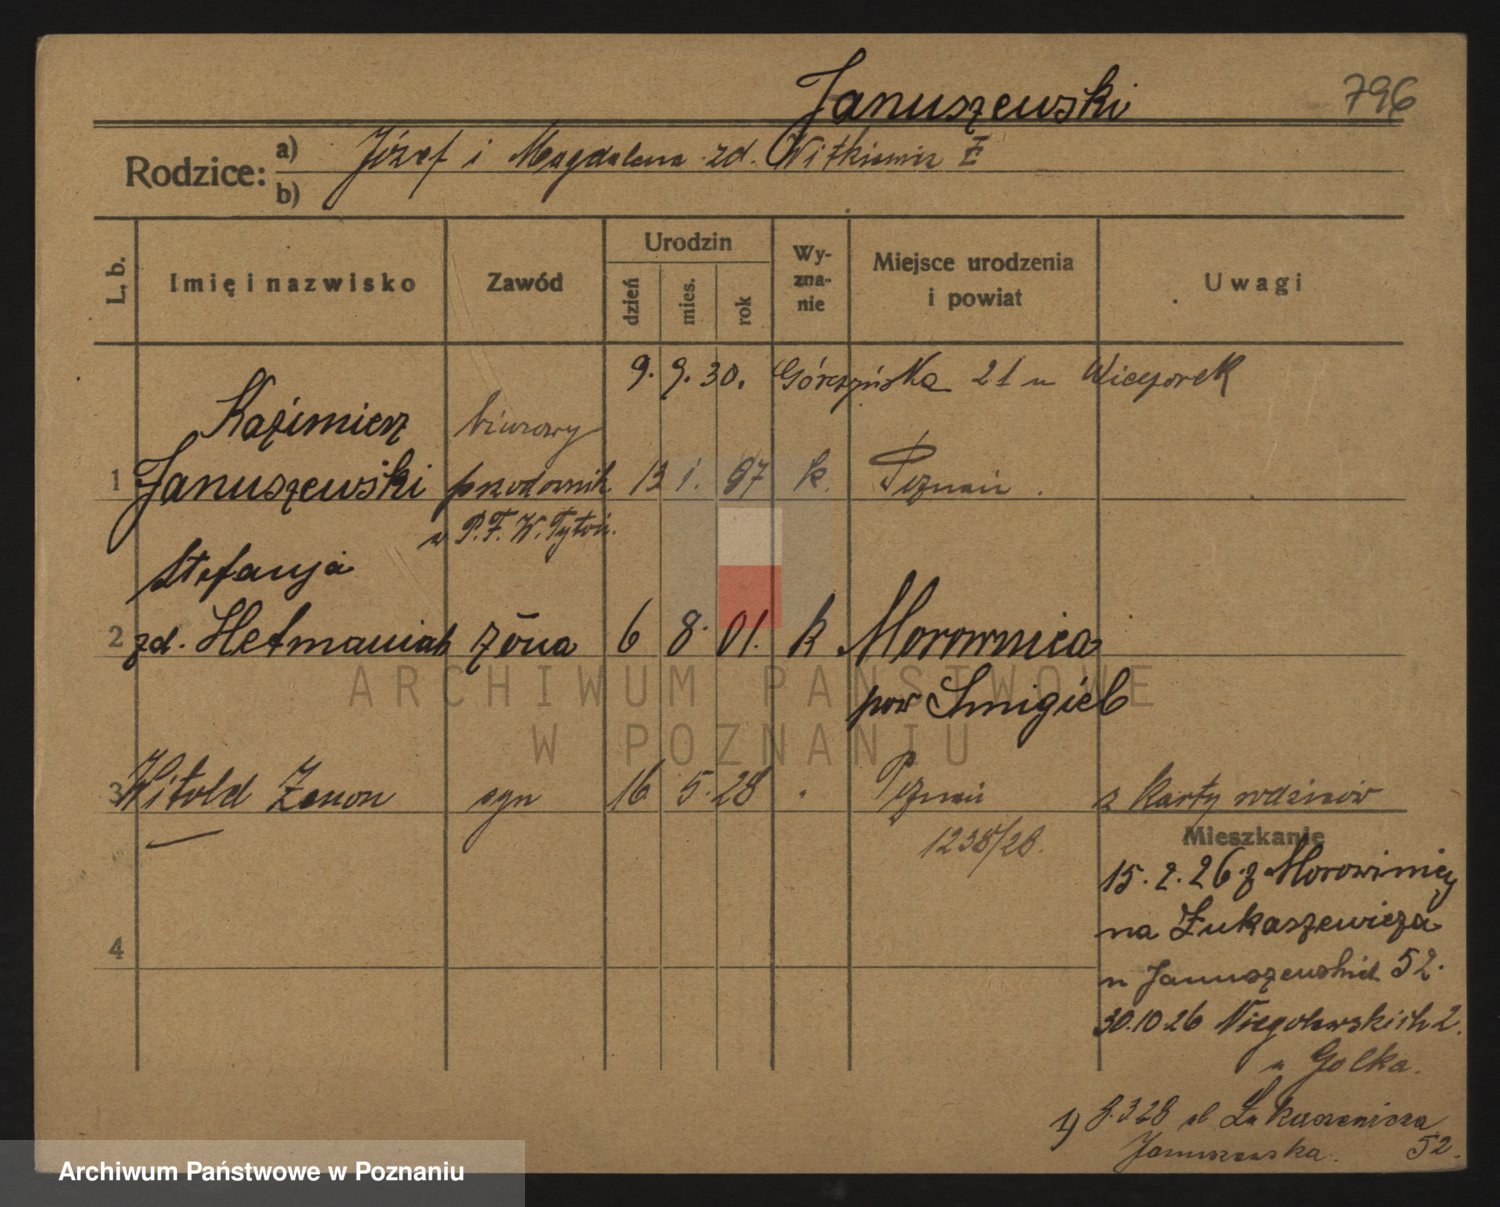 Januszewski 796
Rodzice: a) Józef i Magdalena zd. Witkiewicz
b)
L. b. Imię i nazwisko Zawód Urodzin dzień mies. rok Wyznanie Miejsce urodzenia i powiat Uwagi
9. 9. 30. Górczyńska 21 u Wieczorek
Kazimierz biurowy
1 Januszewski 13 1. 97 k. Poznań.
w P.F.W. Tytoń.
Stefanja
2 zd. Hetmaniak żona 6 8. 01. k Morownica
pow Smigiel
3 Witold Zenon syn 16 5. 28 " Poznań z karty rodziców
1238/28.
Mieszkanie
15. 2. 26 z Morownicy
na Łukaszewicza
4
u Januszewskich 52.
30.10 26 Niegolewskich 2.
u Golka.
1) 8.3 28 ul Łukaszewicza
Januszewska. 52.
ARCHIWUM PAŃSTWOWE
W POZNANIU
Archiwum Państwowe w Poznaniu